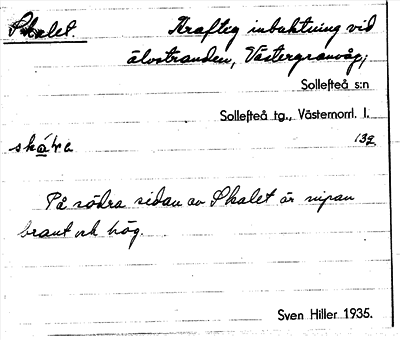 Skalet. Kraftig inbuktning vid
älvstranden, Västergranvåg;
Sollefteå s:n
Sollefteå tg., Västernorrl. l.
132
På södra sidan av Skalet är nipan
brant och hög.
Sven Hiller 1935.